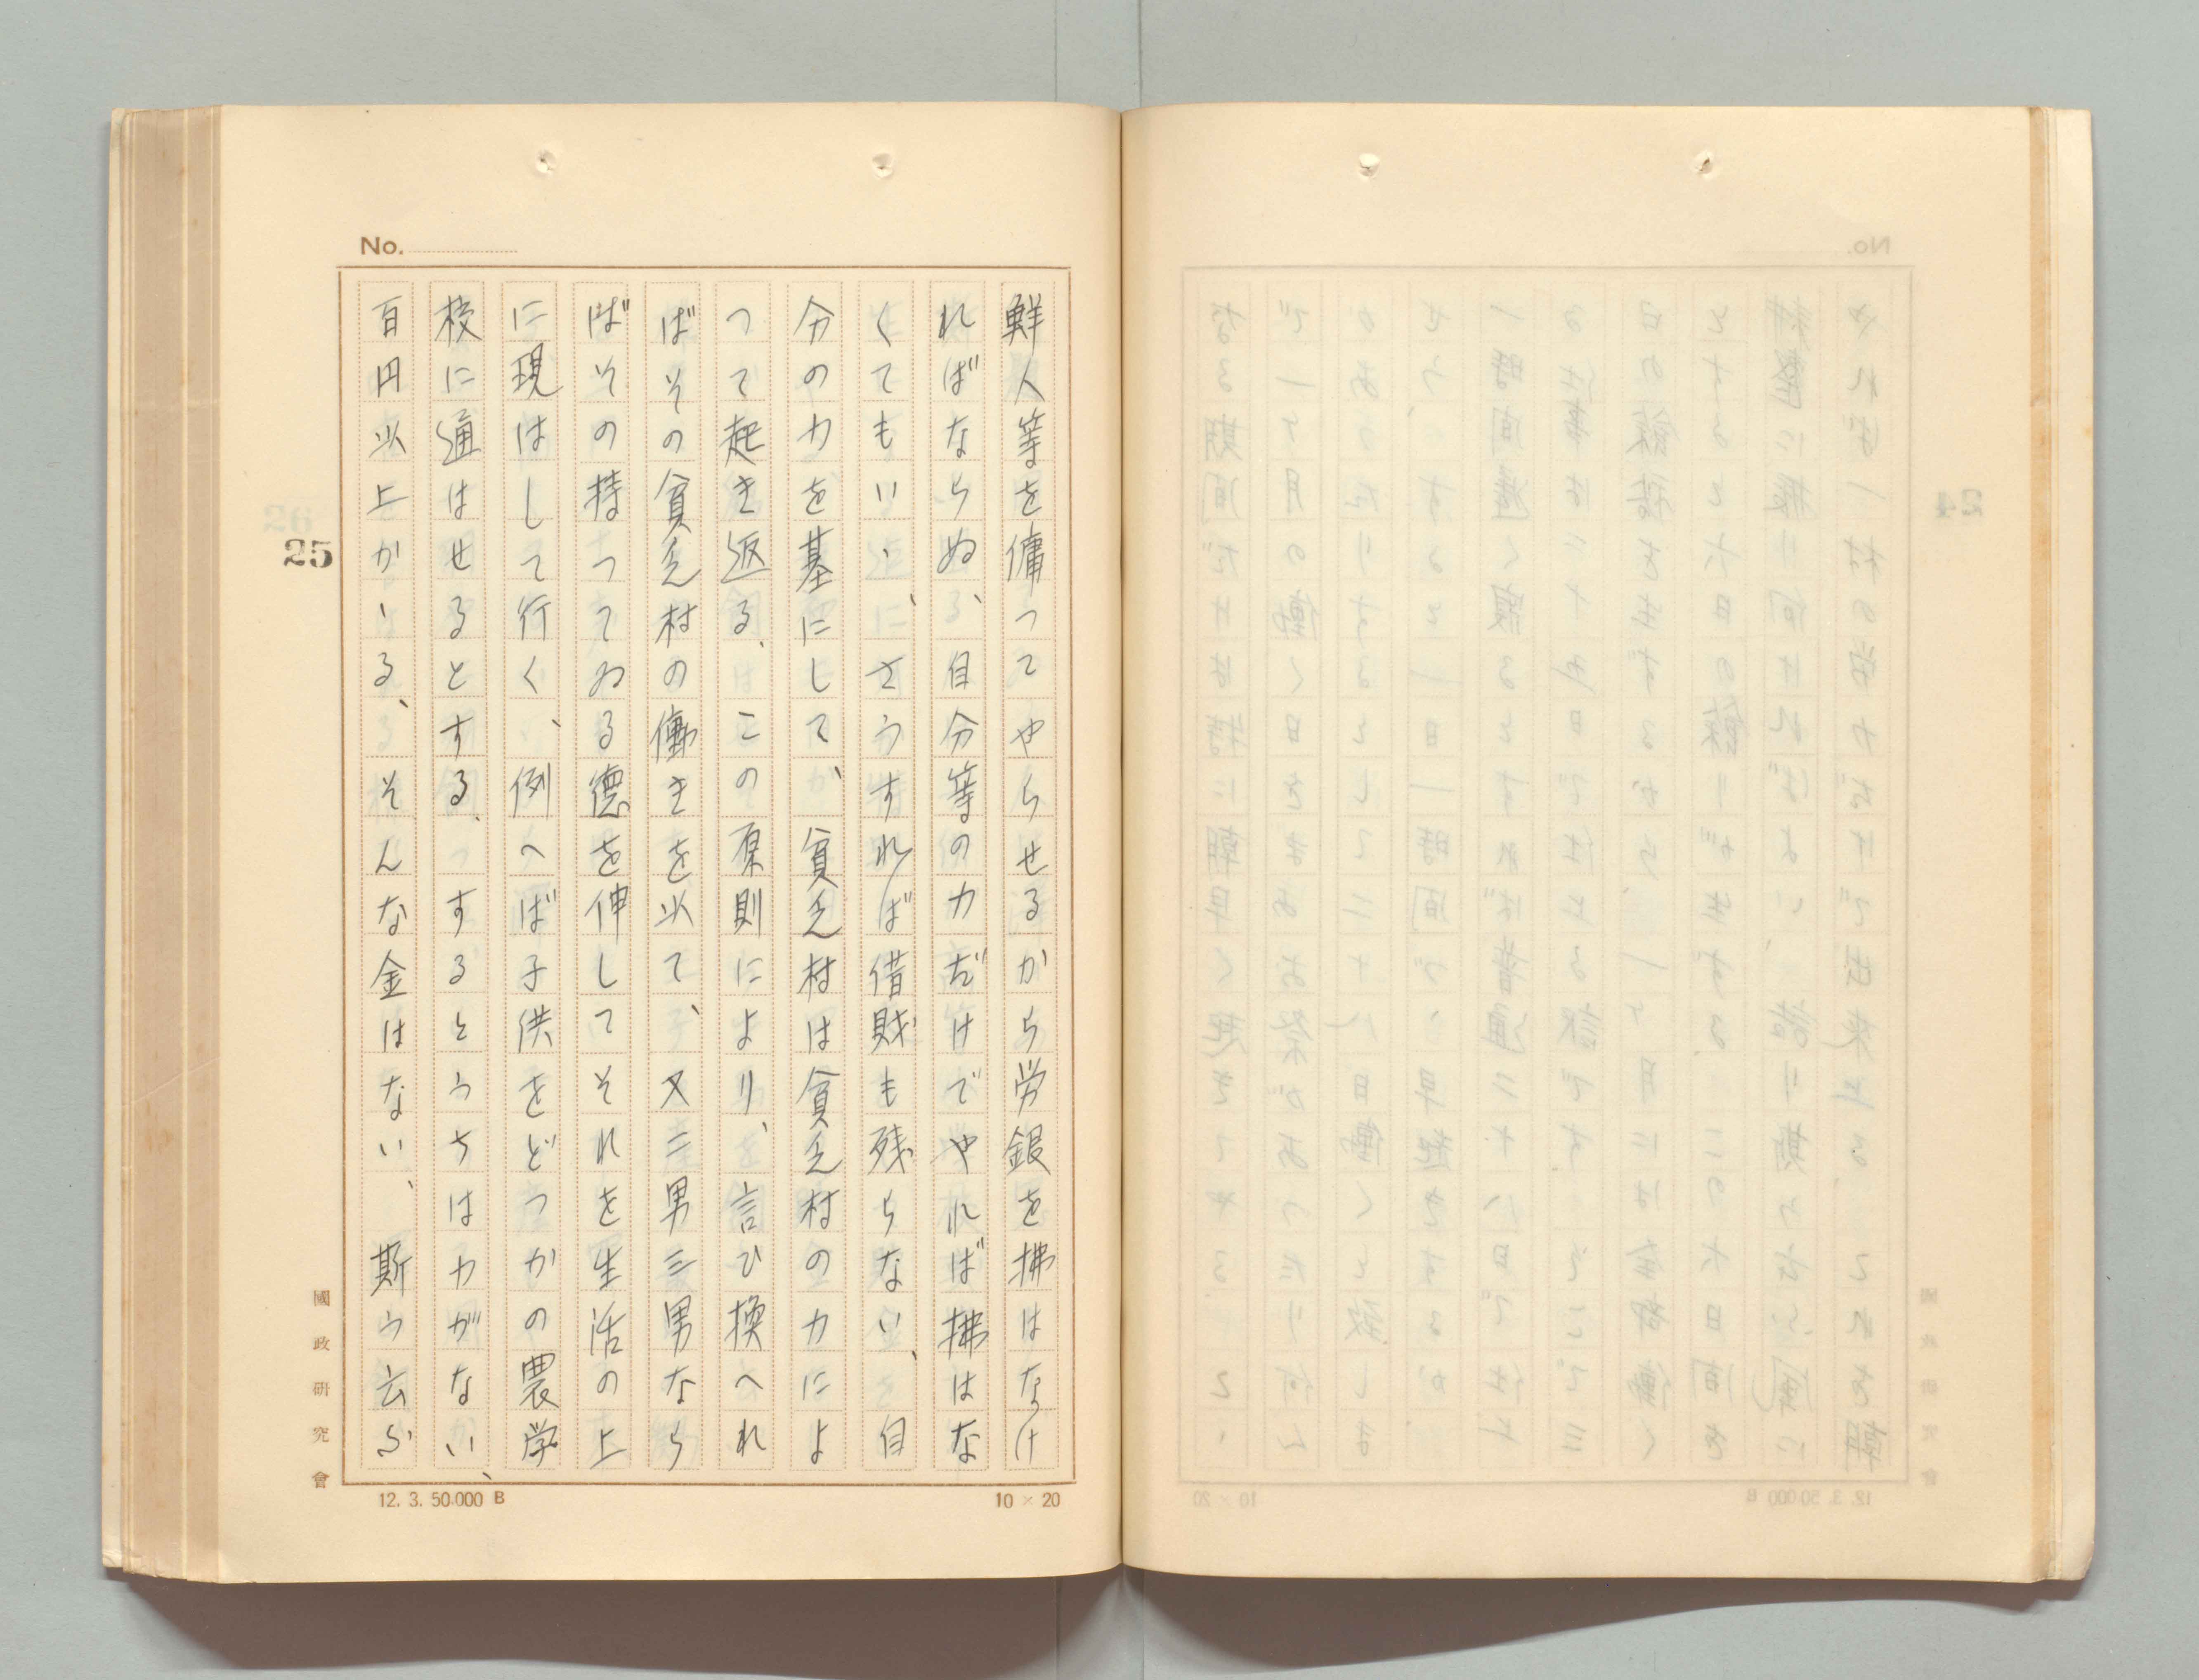 No.
鮮人等を傭つてやらせるから労銀を拂はなけ
ればならぬ、自分等の力だけでやれば拂はな
くてもいゝ、さうすれば借財も残らない、自
分の力を基にして、貧乏村は貧乏村の力によ
つて起き返る、この原則により、言ひ換へれ
ばその貧乏村の働きを以て、又二男三男なら
ばその持つてゐる徳を伸してそれを生活の上
に現はして行く、例へば子供をどつかの農学
校に通はせるとする、するとうちは力がない、
百円以上かゝる、そんな金はない、斯う云ふ
25
國政研究會
12. 3. 50.000 B
10 × 20